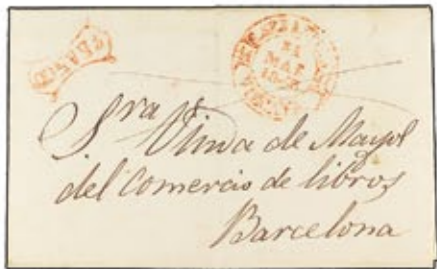 FRANCO
21
MAY
Sra Viuda de Mayol
del Comercio de libros
Barcelona